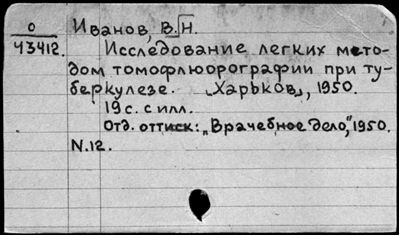 О Иванов, В.Н.
43412. Исследование легких мето-
дом томофлюорографии при ту-
беркулезе. „Харьков„, 1950.
19 с. с илл.
Отд. оттиск: „Врачебное дело,"1950.
N.12.